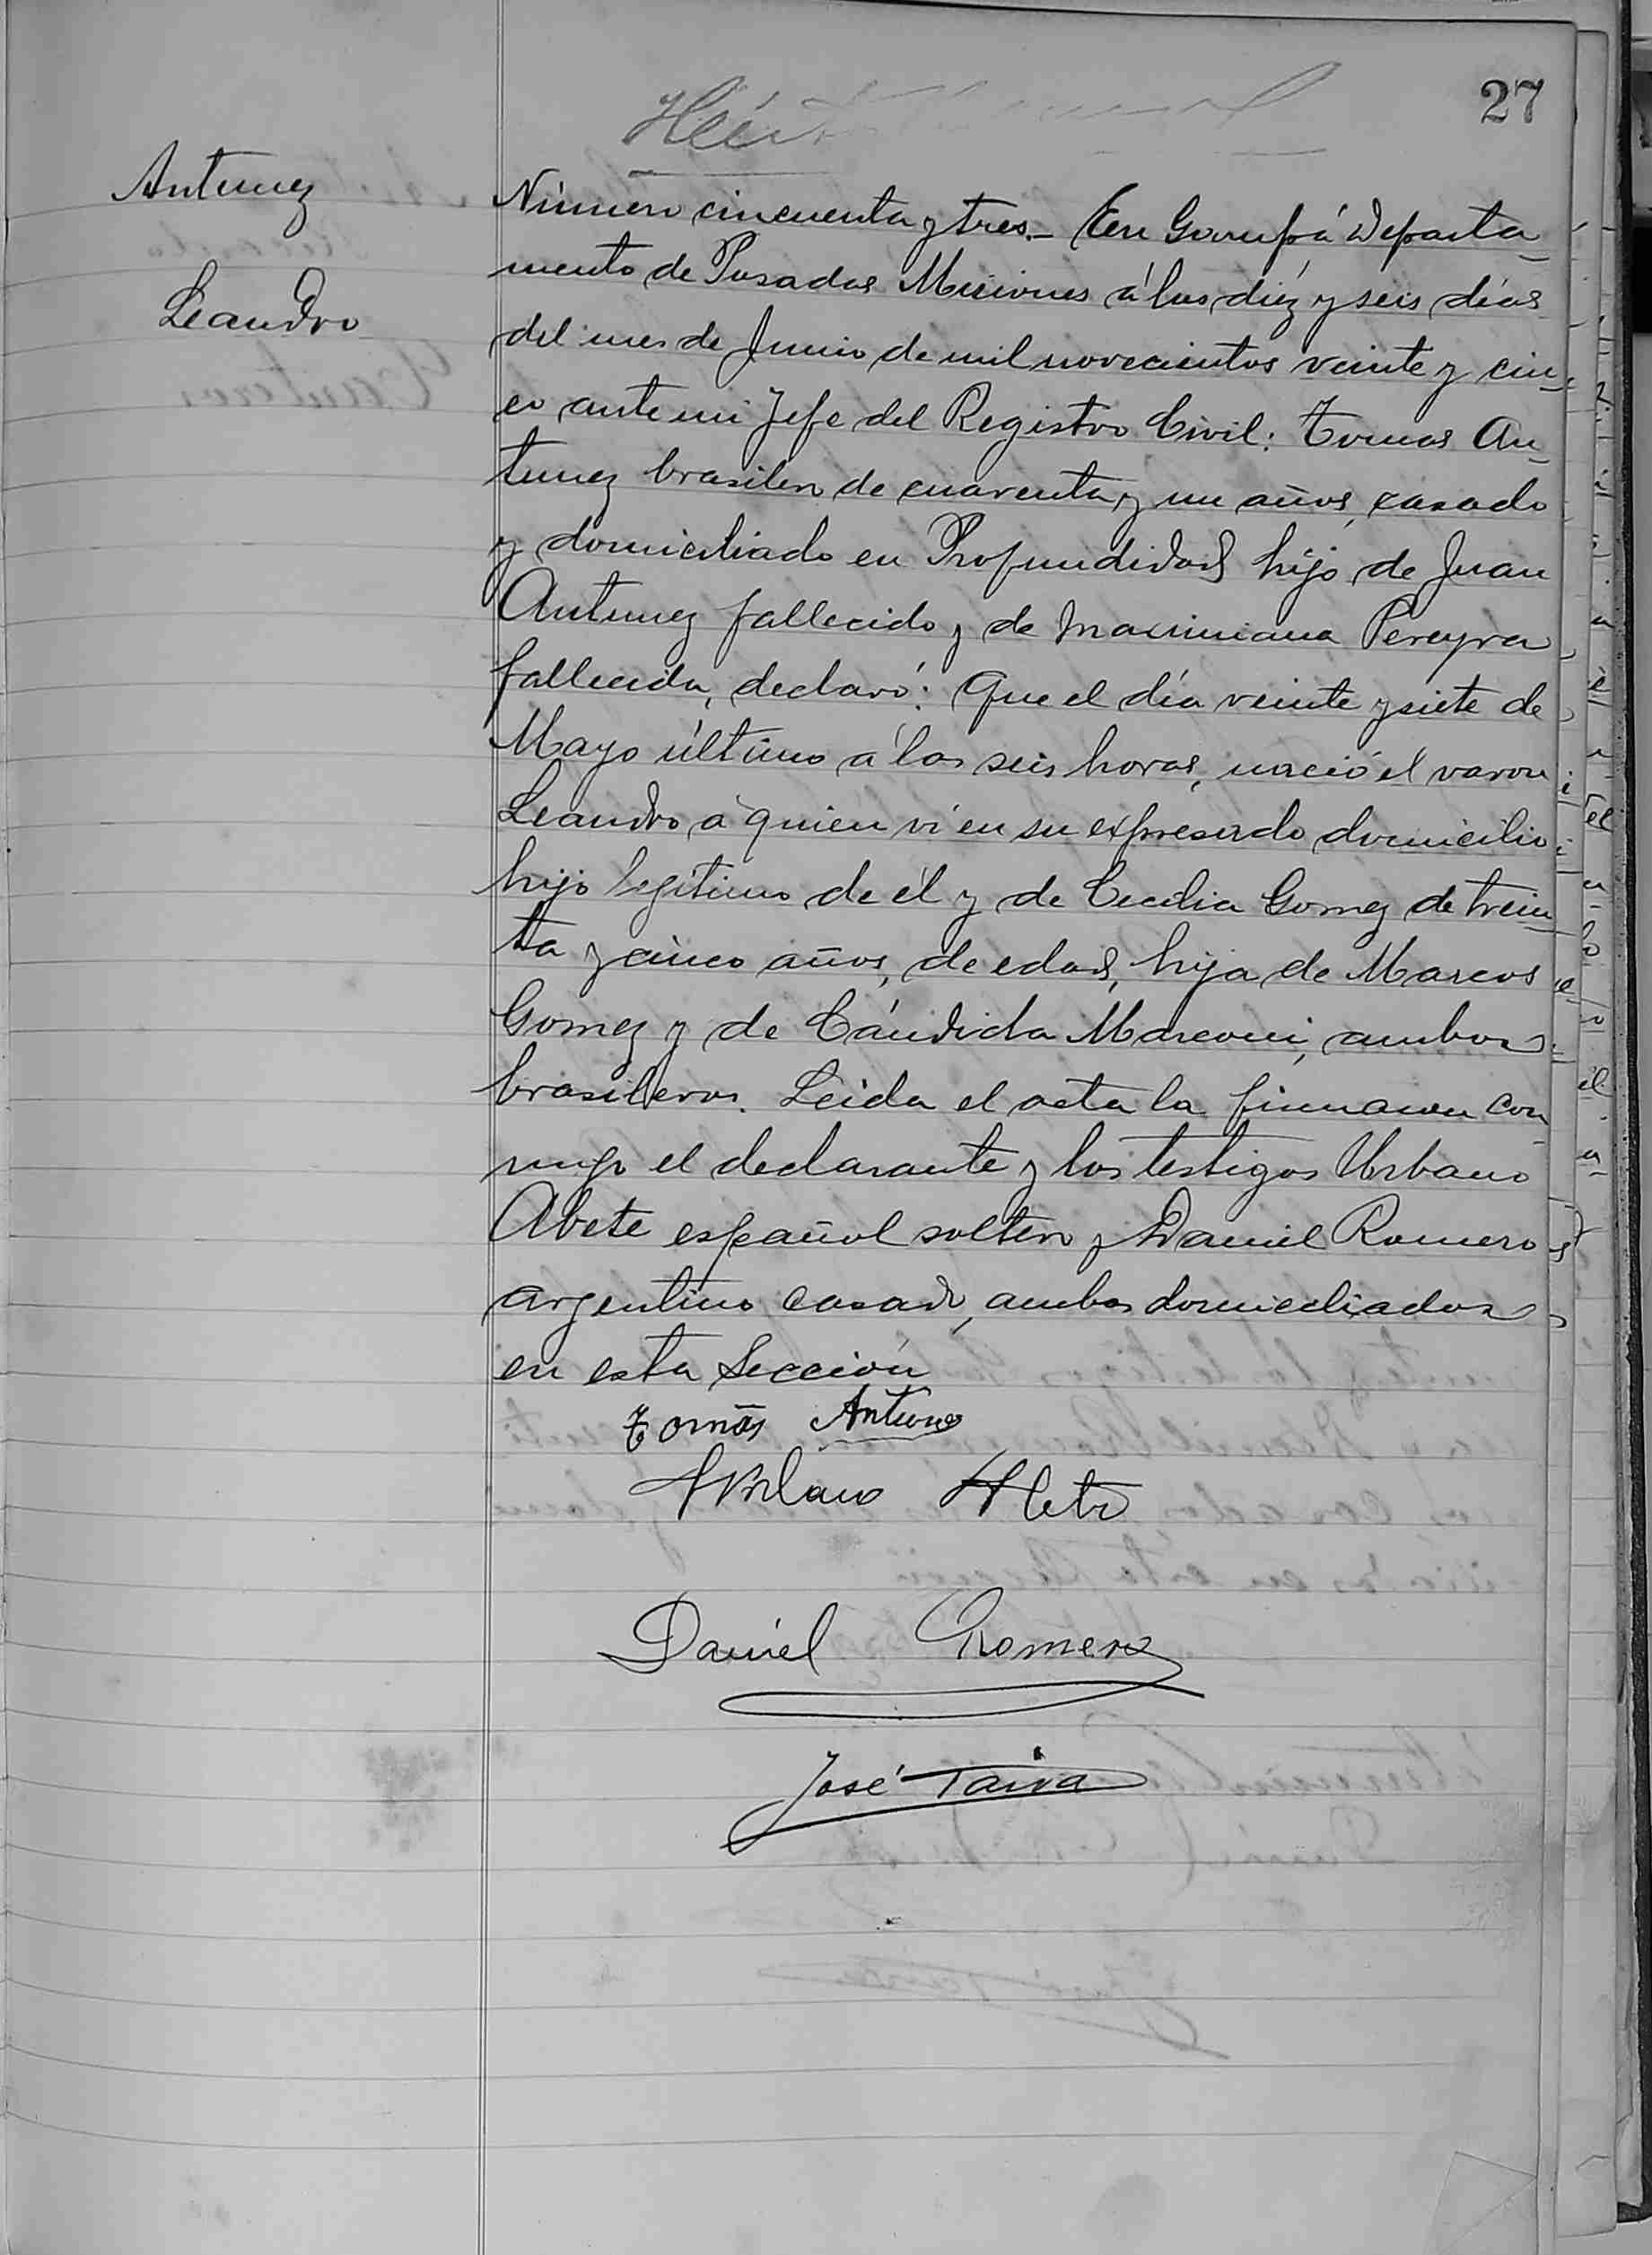 27
Antunez
Leandro
Número cincuenta y tres.- En Garupá Departa-
mento de Posadas Misiones á los diéz y seis días
del mes de Junio de mil novecientos veinte y cin-
co ante mi Jefe del Registro Civil: Tomas An-
tunez brasilero de cuarenta y un años, casado
y domiciliado en Profundidad hijo de Juan
Antunez fallecido y de Maximiana Pereyra
fallecida, declaró: Que el día veinte y siete de
Mayo último á las seis horas, nació el varon
Leandro á quien ví en su expresado domicilio
hijo legítimo de él y de Cecilia Gomez de trein-
ta y cinco años, de edad, hija de Marcos
Gomez y de Cándida Marconi, ambos
brasileros. Leida el acta la firmaron con-
migo el declarante y los testigos Urbano
Abete español soltero y Daniel Romero
argentino casado, ambos domiciliados
en esta Sección
Tomás Antunes
Urbano Abete
Daniel Romero
José Paiva